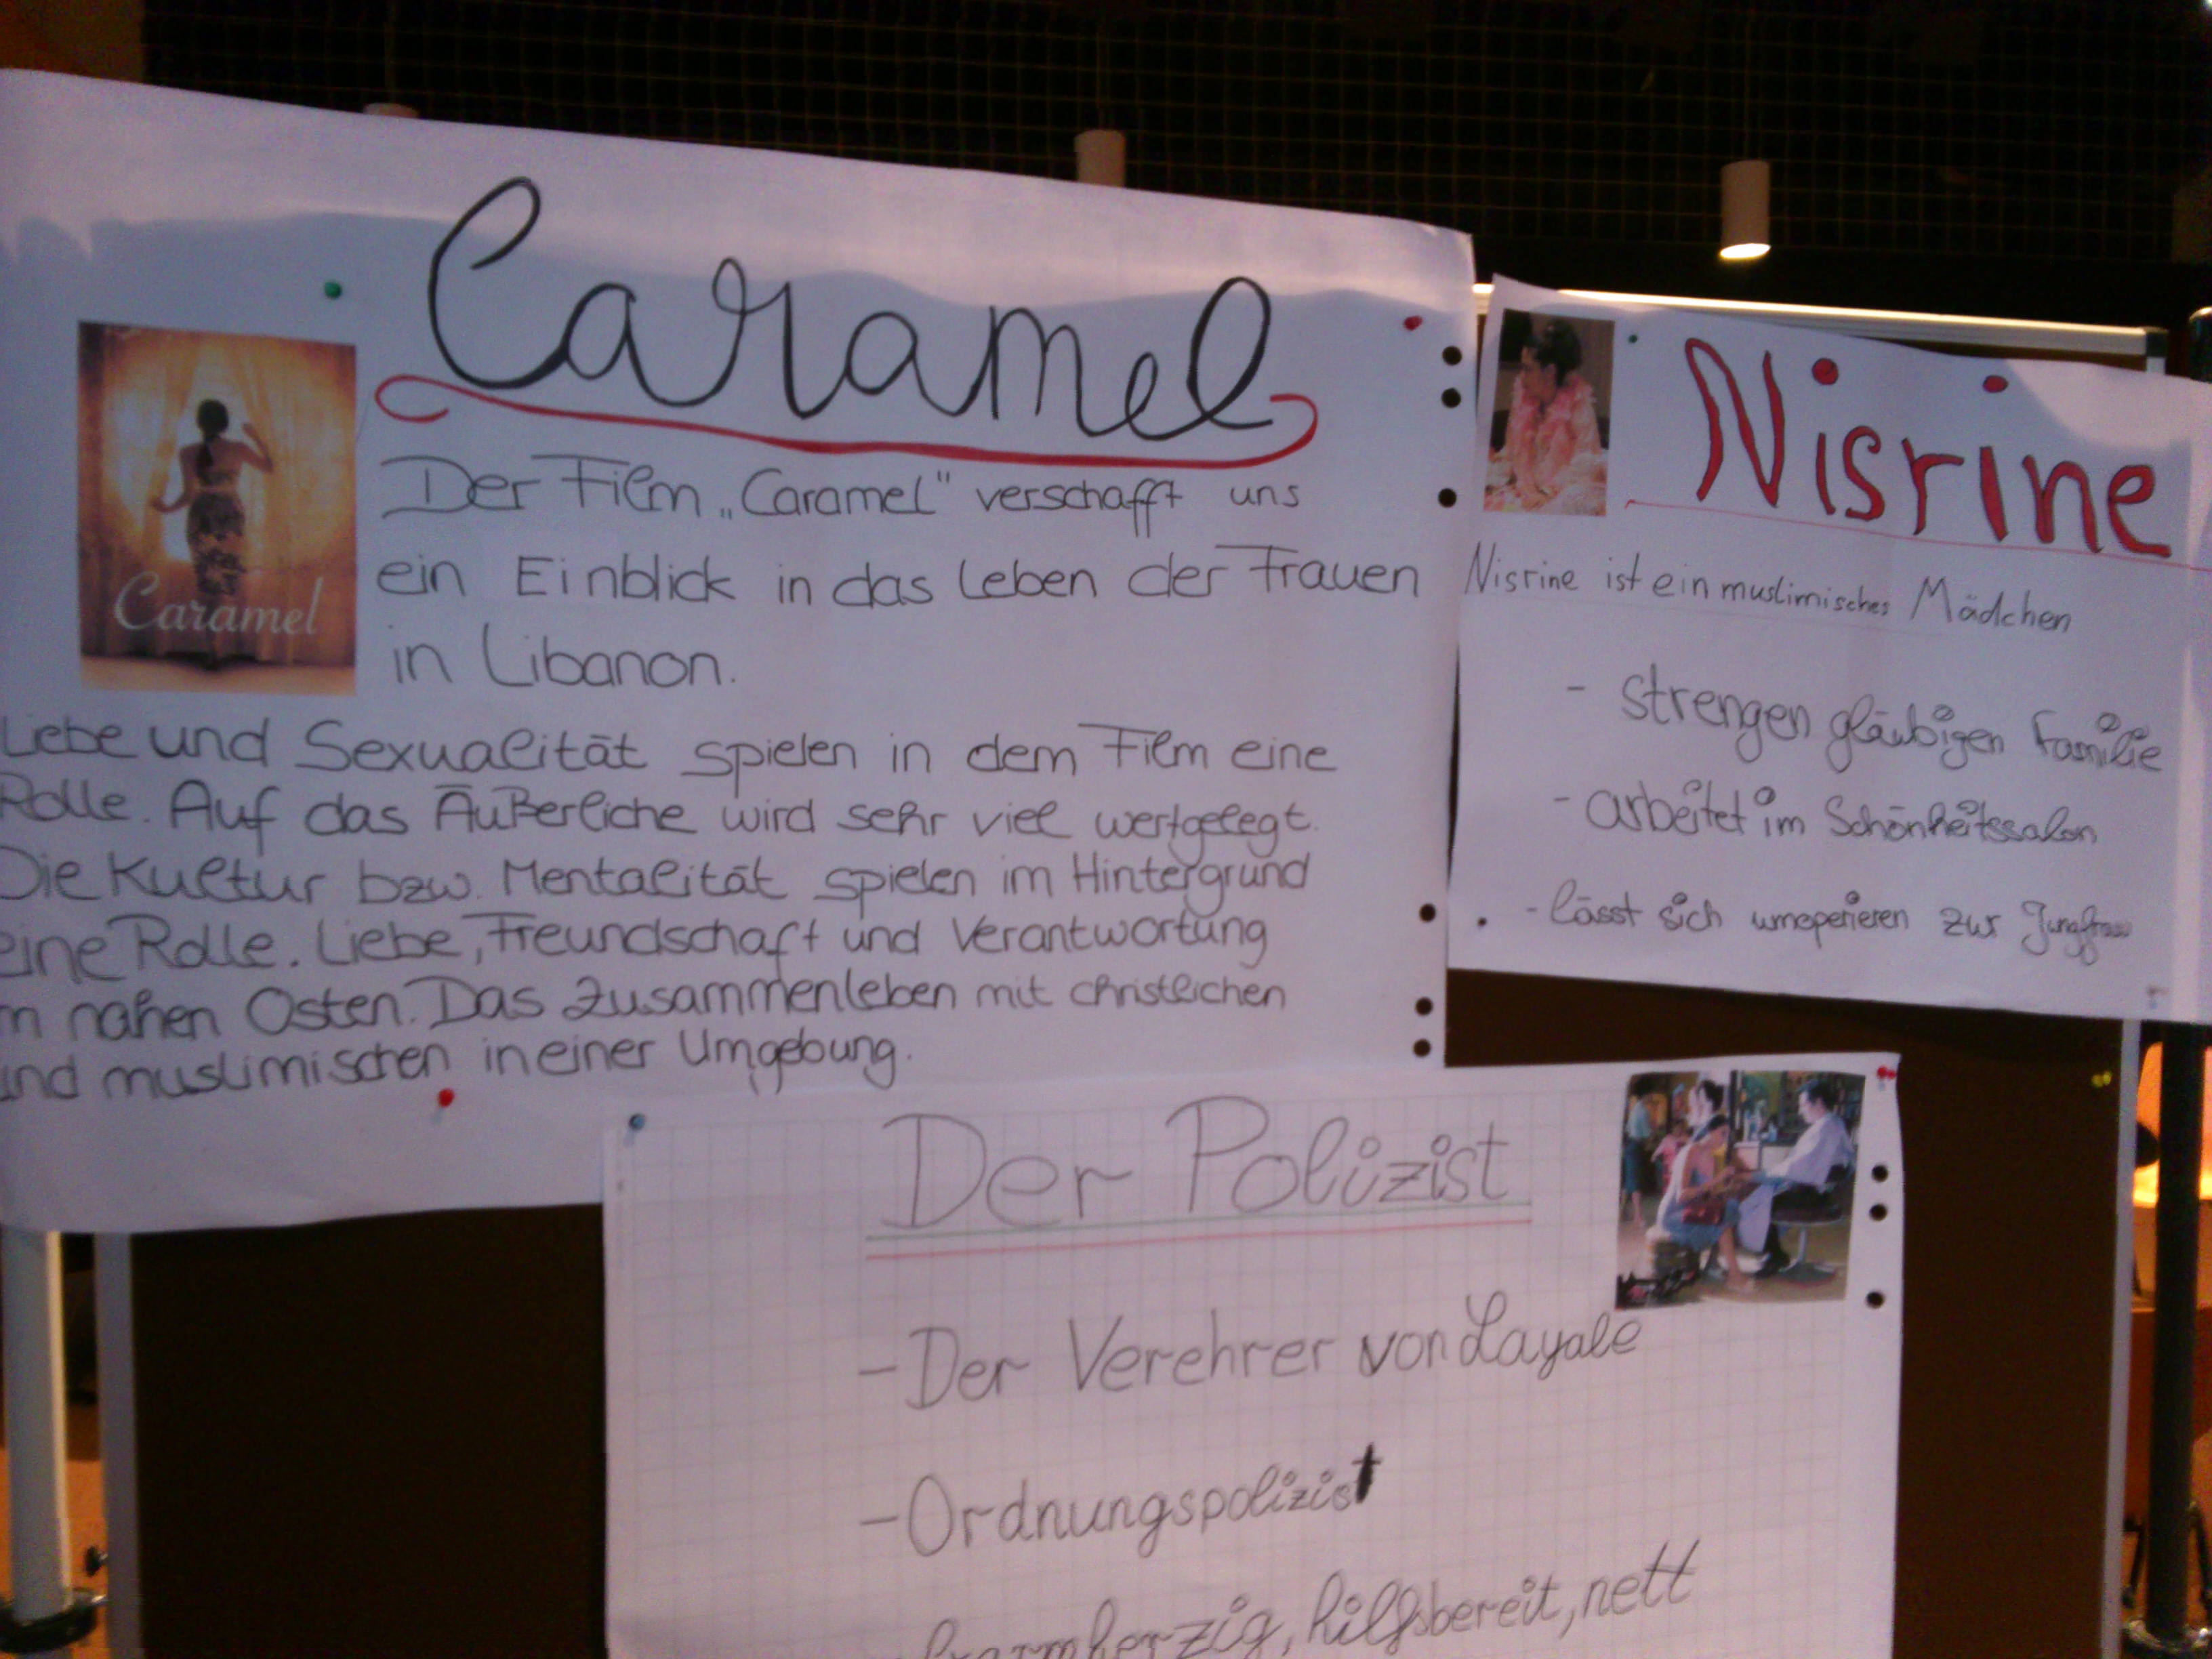 Caramel
Caramel
Der Film „Caramel" verschafft uns
ein Einblick in das Leben der Frauen
in Libanon.
Liebe und Sexualität spielen in dem Film eine
Rolle. Auf das Äußerliche wird sehr viel wertgelegt.
Die Kultur bzw. Mentalität spielen im Hintergrund
eine Rolle. Liebe, Freundschaft und Verantwortung
m nahen Osten. Das Zusammenleben mit christlichen
und muslimischen in einer Umgebung.
Nisrine
Nisrine ist ein muslimisches Mädchen
- strengen gläubigen Familie
- arbeitet im Schönheitssalon
- lässt sich umoperieren zur Jungfrau
Der Polizist
- Der Verehrer von Layale
- Ordnungspolizist
barmherzig, hilfsbereit, nett